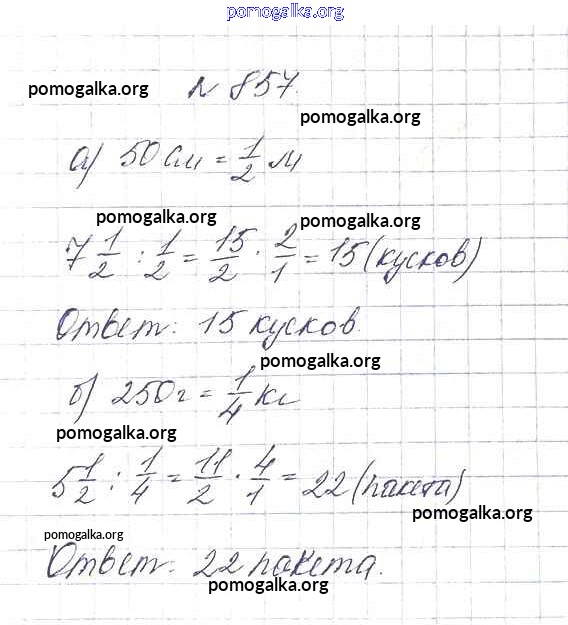 pomogalka.org
pomogalka.org № 857.
pomogalka.org
а) 50 см = 1/2 м
pomogalka.org pomogalka.org
7 1/2 : 1/2 = 15/2 · 2/1 = 15 (кусков)
Ответ: 15 кусков.
pomogalka.org
б) 250 г = 1/4 кг
pomogalka.org
5 1/2 : 1/4 = 11/2 · 4/1 = 22 (пакета)
pomogalka.org
pomogalka.org
Ответ: 22 пакета.
pomogalka.org